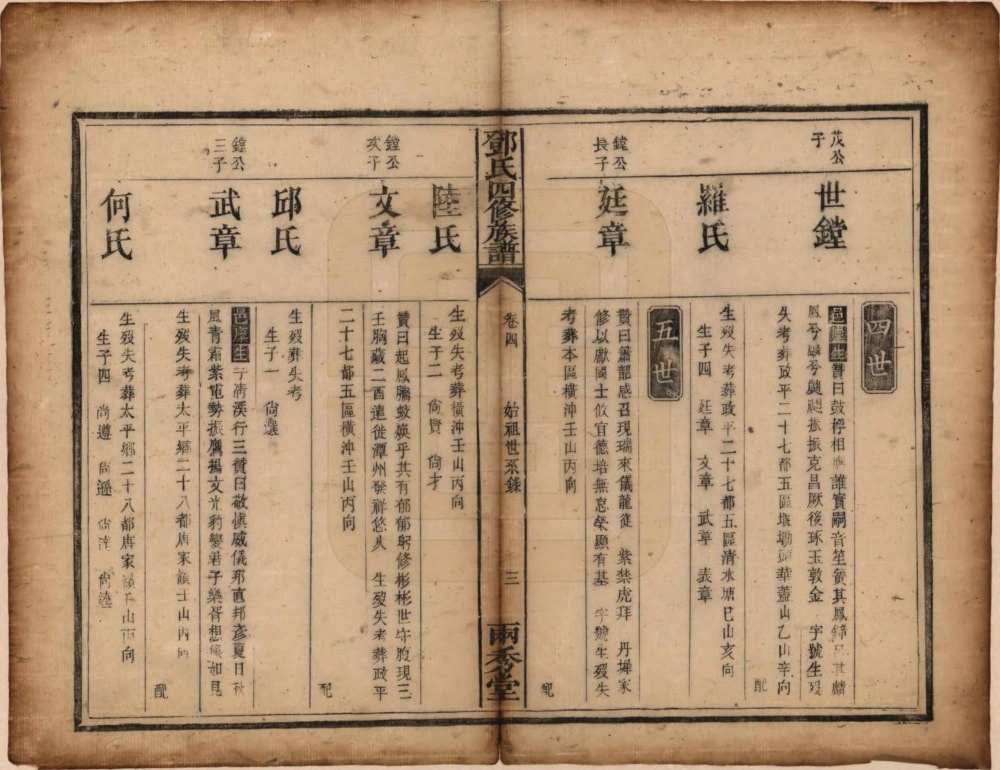 四世
茂公子
世鏜
邑庠生贊曰鼓桴相誰實嗣音笙簧其鳳鏘其麟
鳳兮麟兮颺颺振振克昌厥後琢玉敦金 字號生歿
失考葬政平二十七都五區堰塘頭華蓋山乙山辛向
配
羅氏
生歿失考葬政平二十七都五區清水塘巳山亥向
生子四 廷章 文章 武章 表章
五世
鏜公長子
廷章
贊曰簫韶感召現瑞來儀龍從 紫禁虎拜 丹墀家
修以獻國士攸宜德培無怠榮顯有基 字號生歿失
考葬本區橫沖壬山丙向
配
鄧氏四修族譜
卷四 始祖世系錄
三
兩秀堂
陸氏
生歿失考葬橫沖壬山丙向
生子二 尚賢 尚才
鏜公次子
文章
贊曰起鳳騰蛟媖乎其有郁郁躬修彬彬世守腹現三
壬胸藏二酉遣徙潭州發祥悠久 生歿失考葬政平
二十七都五區橫沖壬山丙向
配
邱氏
生歿葬失考
生子一 尚選
鏜公三子
武章
邑庠生字清溪行三贊曰敬慎威儀邦直邦彥夏日秋
風青霜紫電勢振鷹揚文光豹變君子樂胥想像如見
生歿失考葬太平鄉二十八都唐家嶺壬山丙向
配
何氏
生歿失考葬太平鄉二十八都唐家嶺壬山丙向
生子四 尚遵 尚遜 尚達 尚逵